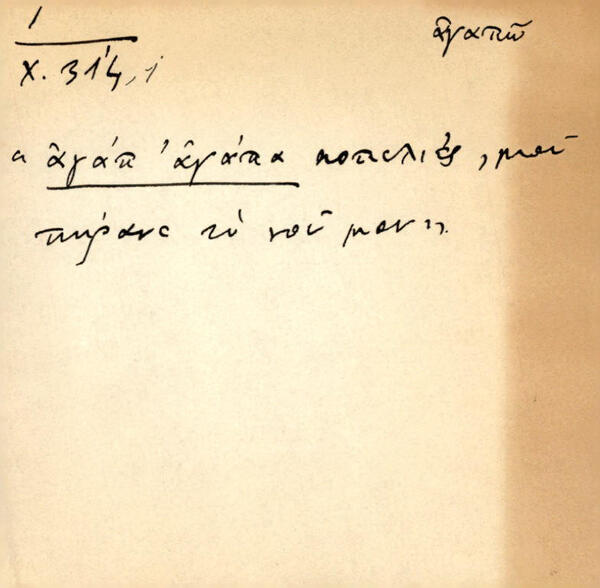 1
χ. 314,1
ἀγαπῶ
"ἀγάπ 'ἀγάπα κοπελιές, μοῦ
πήρανε τὸ νοῦ μου".